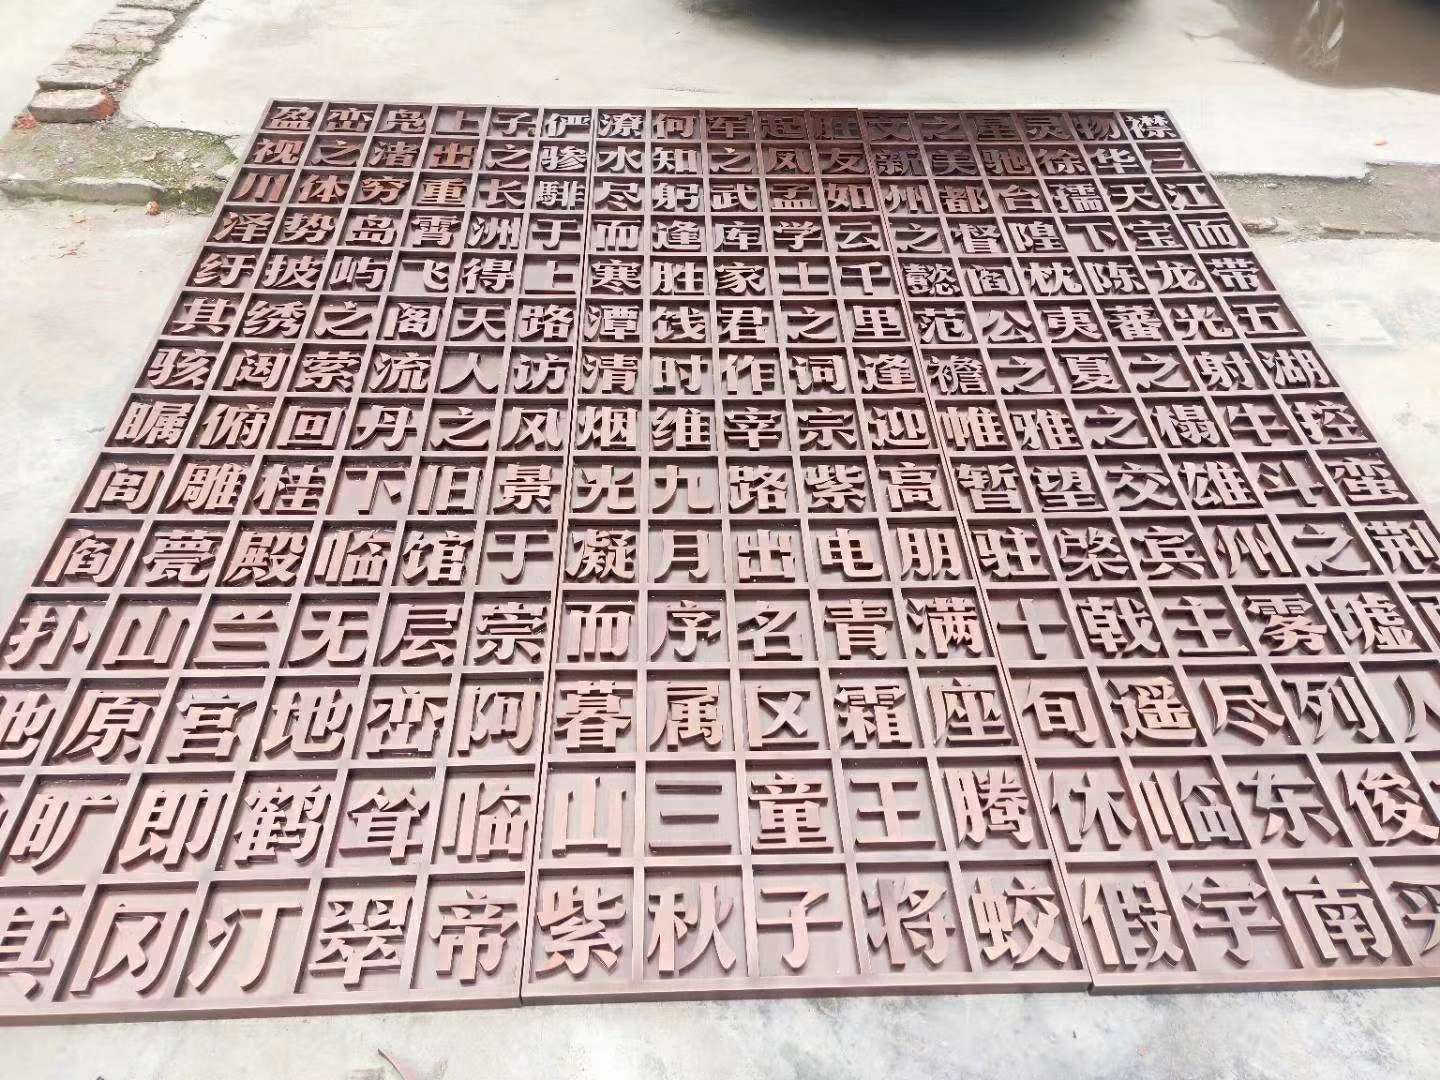 襟三江而带五湖控蛮荆
物华天宝龙光射牛斗之墟人
灵徐孺下陈蕃之榻雄州雾列俊
星驰台隍枕夷夏之交宾主尽东南
之美都督阎公之雅望棨戟遥临宇
文新州之懿范襜帷暂驻十旬休假
胜友如云千里逢迎高朋满座腾蛟
起凤孟学士之词宗紫电青霜王将
军之武库家君作宰路出名区童子
何知躬逢胜饯时维九月序属三秋
潦水尽而寒潭清烟光凝而暮山紫
俨骖騑于上路访风景于崇阿临帝
子之长洲得天人之旧馆层峦耸翠
上出重霄飞阁流丹下临无地鹤汀
凫渚穷岛屿之萦回桂殿兰宫即冈
峦之体势披绣闼俯雕甍山原旷其
盈视川泽纡其骇瞩闾阎扑地